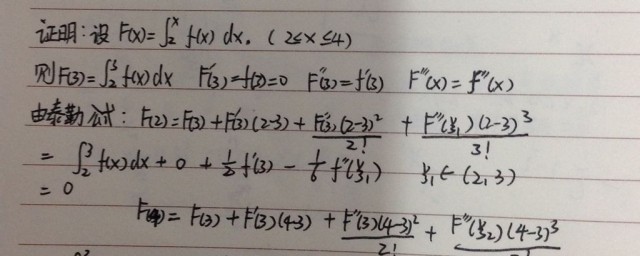 证明：设 F(x)=∫₂ˣ f(x) dx. (2≤x≤4)
则F(3)=∫₂³ f(x)dx F'(3)=f(3)=0 F''(3)=f'(3) F'''(x)=f''(x)
由泰勒公式：F(2)=F(3)+F'(3)(2-3)+F''(3)(2-3)²/2! + F'''(ξ₁)(2-3)³/3!
= ∫₂³ f(x)dx + 0 + 1/2 f'(3) - 1/6 f''(ξ₁) ξ₁∈(2,3)
= 0
F(4)=F(3)+F'(3)(4-3)+F''(3)(4-3)²/2!+F'''(ξ₂)(4-3)³